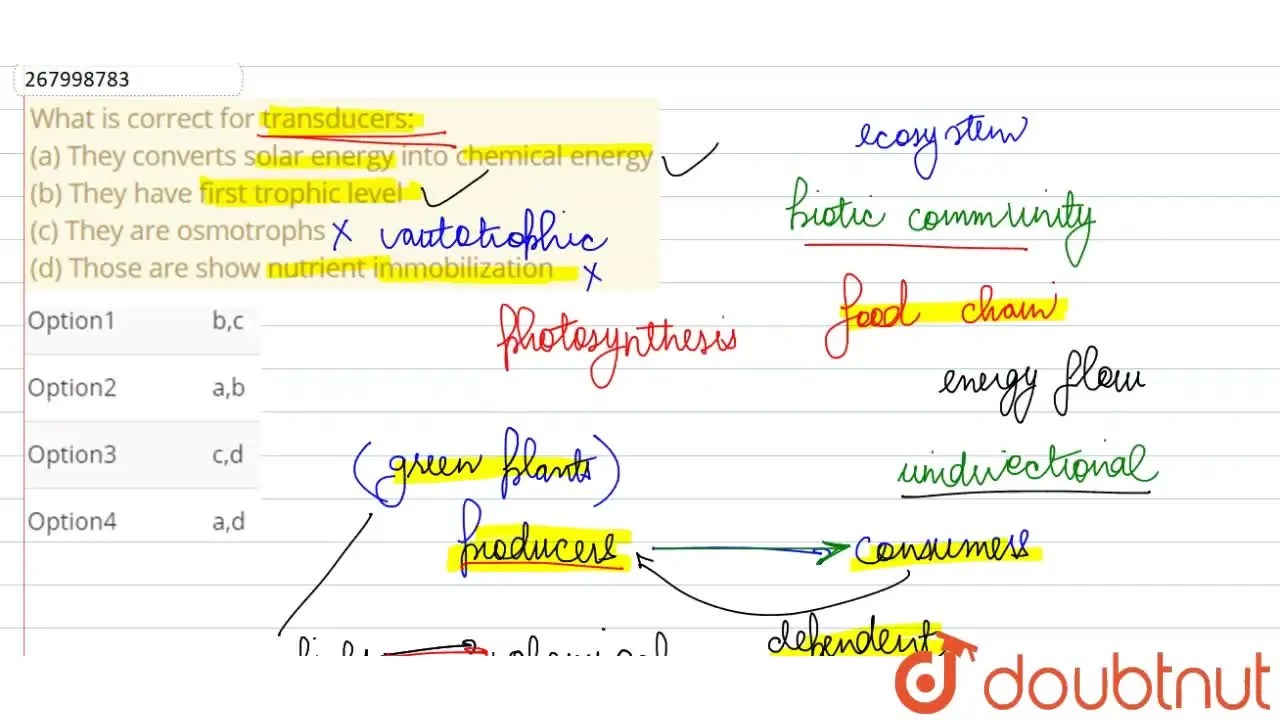 267998783
What is correct for transducers:
(a) They converts solar energy into chemical energy
(b) They have first trophic level
(c) They are osmotrophs x autotrophic
(d) Those are show nutrient immobilization x
Option1 b,c
Option2 a,b
Option3 c,d
Option4 a,d
ecosystem
biotic community
food chain
photosynthesis
energy flow
unidirectional
(green plants)
producers
consumers
dependent
doubtnut